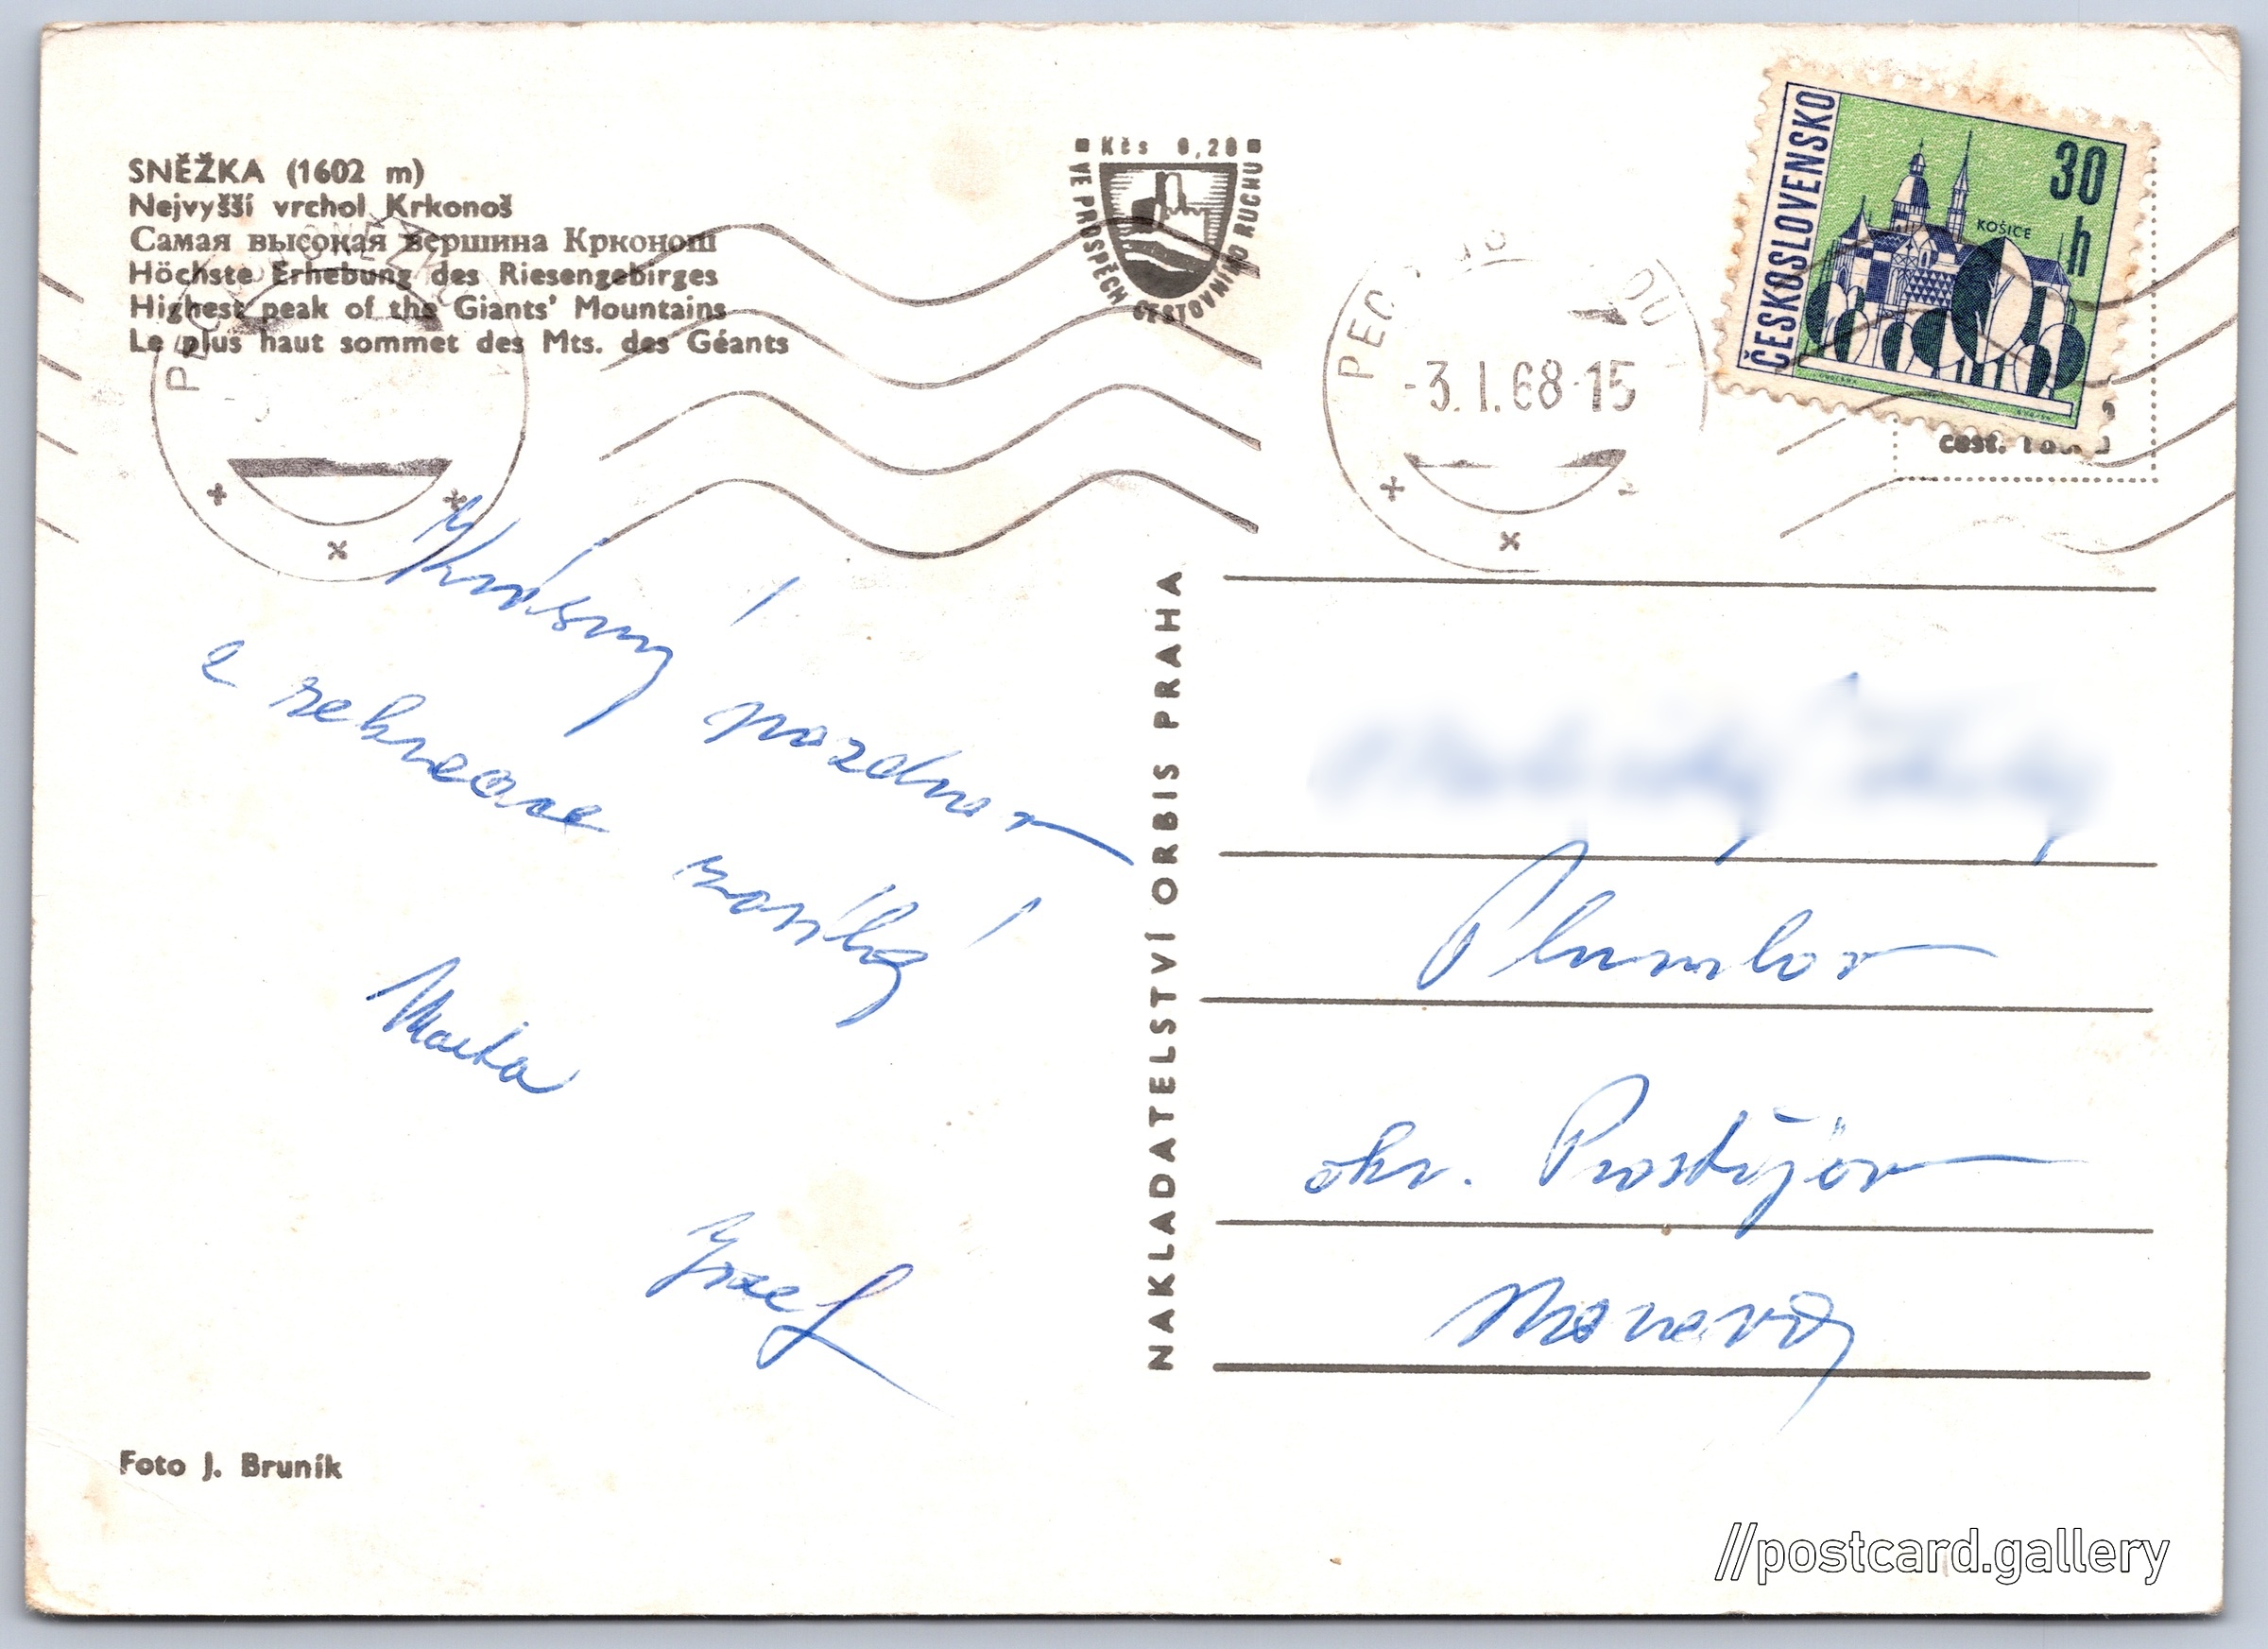 SNĚŽKA (1602 m)
Nejvyšší vrchol Krkonoš
Самая высокая вершина Крконош
Höchste Erhebung des Riesengebirges
Highest peak of the Giants' Mountains
Le plus haut sommet des Mts. des Géants
Kčs 0,20
VE PROSPĚCH CESTOVNÍHO RUCHU
PEC
-3.I.68-15
ČESKOSLOVENSKO
30
h
KOŠICE
cest.
Krásný pozdrav
z rekreace zasílá
Marta
Josef
NAKLADATELSTVÍ ORBIS PRAHA
Plumlov
okr. Prostějov
Morava
Foto J. Bruník
//postcard.gallery